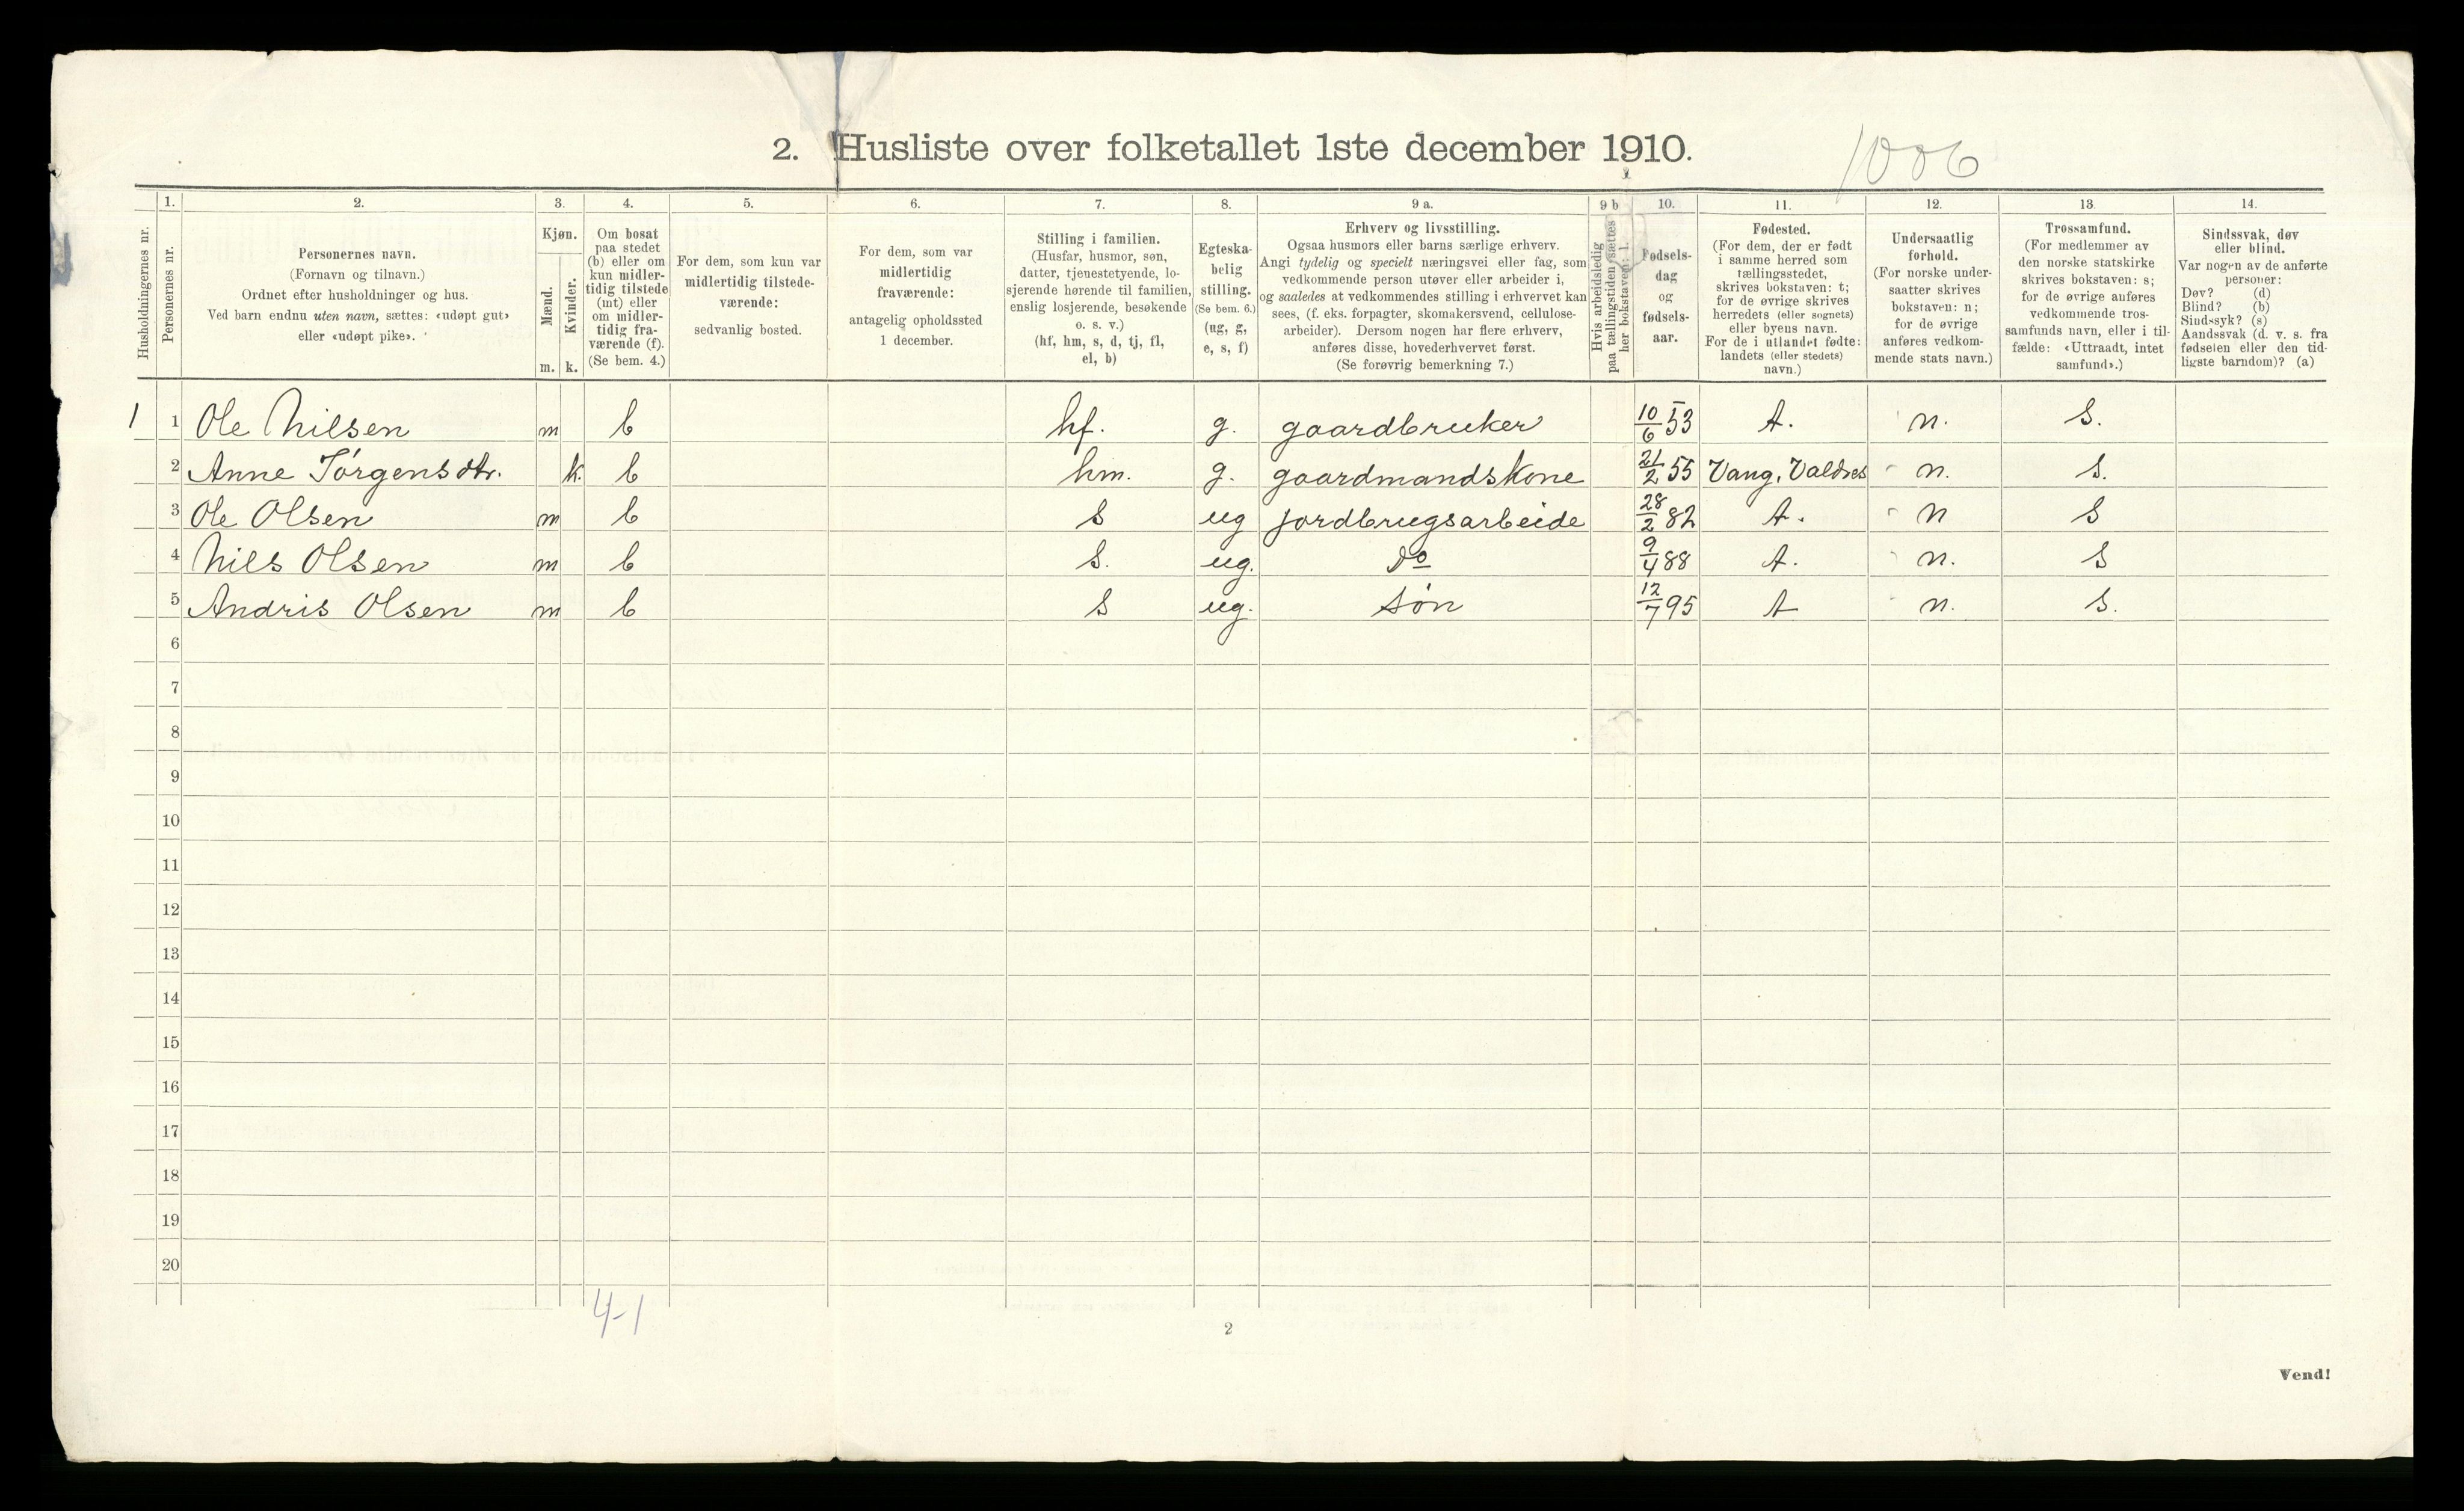 2. Husliste over folketallet 1ste december 1910.
1006
1. 2. 3. 4. 5. 6. 7. 8. 9 a. 9 b 10. 11. 12. 13. 14.
Husholdningernes nr.
Personernes nr.
Personernes navn.
(Fornavn og tilnavn.)
Ordnet efter husholdninger og hus.
Ved barn endnu uten navn, sættes: «udøpt gut»
eller «udøpt pike».
Kjøn.
Mænd.
Kvinder.
m. k.
Om bosat
paa stedet
(b) eller om
kun midler-
tidig tilstede
(mt) eller
om midler-
tidig fra-
værende (f).
(Se bem. 4.)
For dem, som kun var
midlertidig tilstede-
værende:
sedvanlig bosted.
For dem, som var
midlertidig
fraværende:
antagelig opholdssted
1 december.
Stilling i familien.
(Husfar, husmor, søn,
datter, tjenestetyende, lo-
sjerende hørende til familien,
enslig losjerende, besøkende
o. s. v.)
(hf, hm, s, d, tj, fl,
el, b)
Egteska-
belig
stilling.
(Se bem. 6.)
(ug, g,
e, s, f)
Erhverv og livsstilling.
Ogsaa husmors eller barns særlige erhverv.
Angi tydelig og specielt næringsvei eller fag, som
vedkommende person utøver eller arbeider i,
og saaledes at vedkommendes stilling i erhvervet kan
sees, (f. eks. forpagter, skomakersvend, cellulose-
arbeider). Dersom nogen har flere erhverv,
anføres disse, hovederhvervet først.
(Se forøvrig bemerkning 7.)
Hvis arbeidsledig
paa tællingstiden sættes
her bokstaven: l.
Fødsels-
dag
og
fødsels-
aar.
Fødested.
(For dem, der er født
i samme herred som
tællingsstedet,
skrives bokstaven: t;
for de øvrige skrives
herredets (eller sognets)
eller byens navn.
For de i utlandet fødte:
landets (eller stedets)
navn.)
Undersaatlig
forhold.
(For norske under-
saatter skrives
bokstaven: n;
for de øvrige
anføres vedkom-
mende stats navn.)
Trossamfund.
(For medlemmer av
den norske statskirke
skrives bokstaven: s;
for de øvrige anføres
vedkommende tros-
samfunds navn, eller i til-
fælde: «Uttraadt, intet
samfund».)
Sindssvak, døv
eller blind.
Var nogen av de anførte
personer:
Døv? (d)
Blind? (b)
Sindssyk? (s)
Aandssvak (d. v. s. fra
fødselen eller den tid-
ligste barndom)? (a)
1 1 Ole Nilsen m b hf. g. gaardbruker 10/6 53 t. n. S.
2 Anne Jørgensdtr. k. b hm. g. gaardmandskone 21/2 55 Vang, Valdres n. S.
3 Ole Olsen m b S ug jordbrugsarbeide 28/2 82 t. n S
4 Nils Olsen m b S. ug. do 9/4 88 t. n. S
5 Andris Olsen m b S ug. søn 12/7 95 t n. S.
6
7
8
9
10
11
12
13
14
15
16
17
18
19
20
4-1
2
Vend!